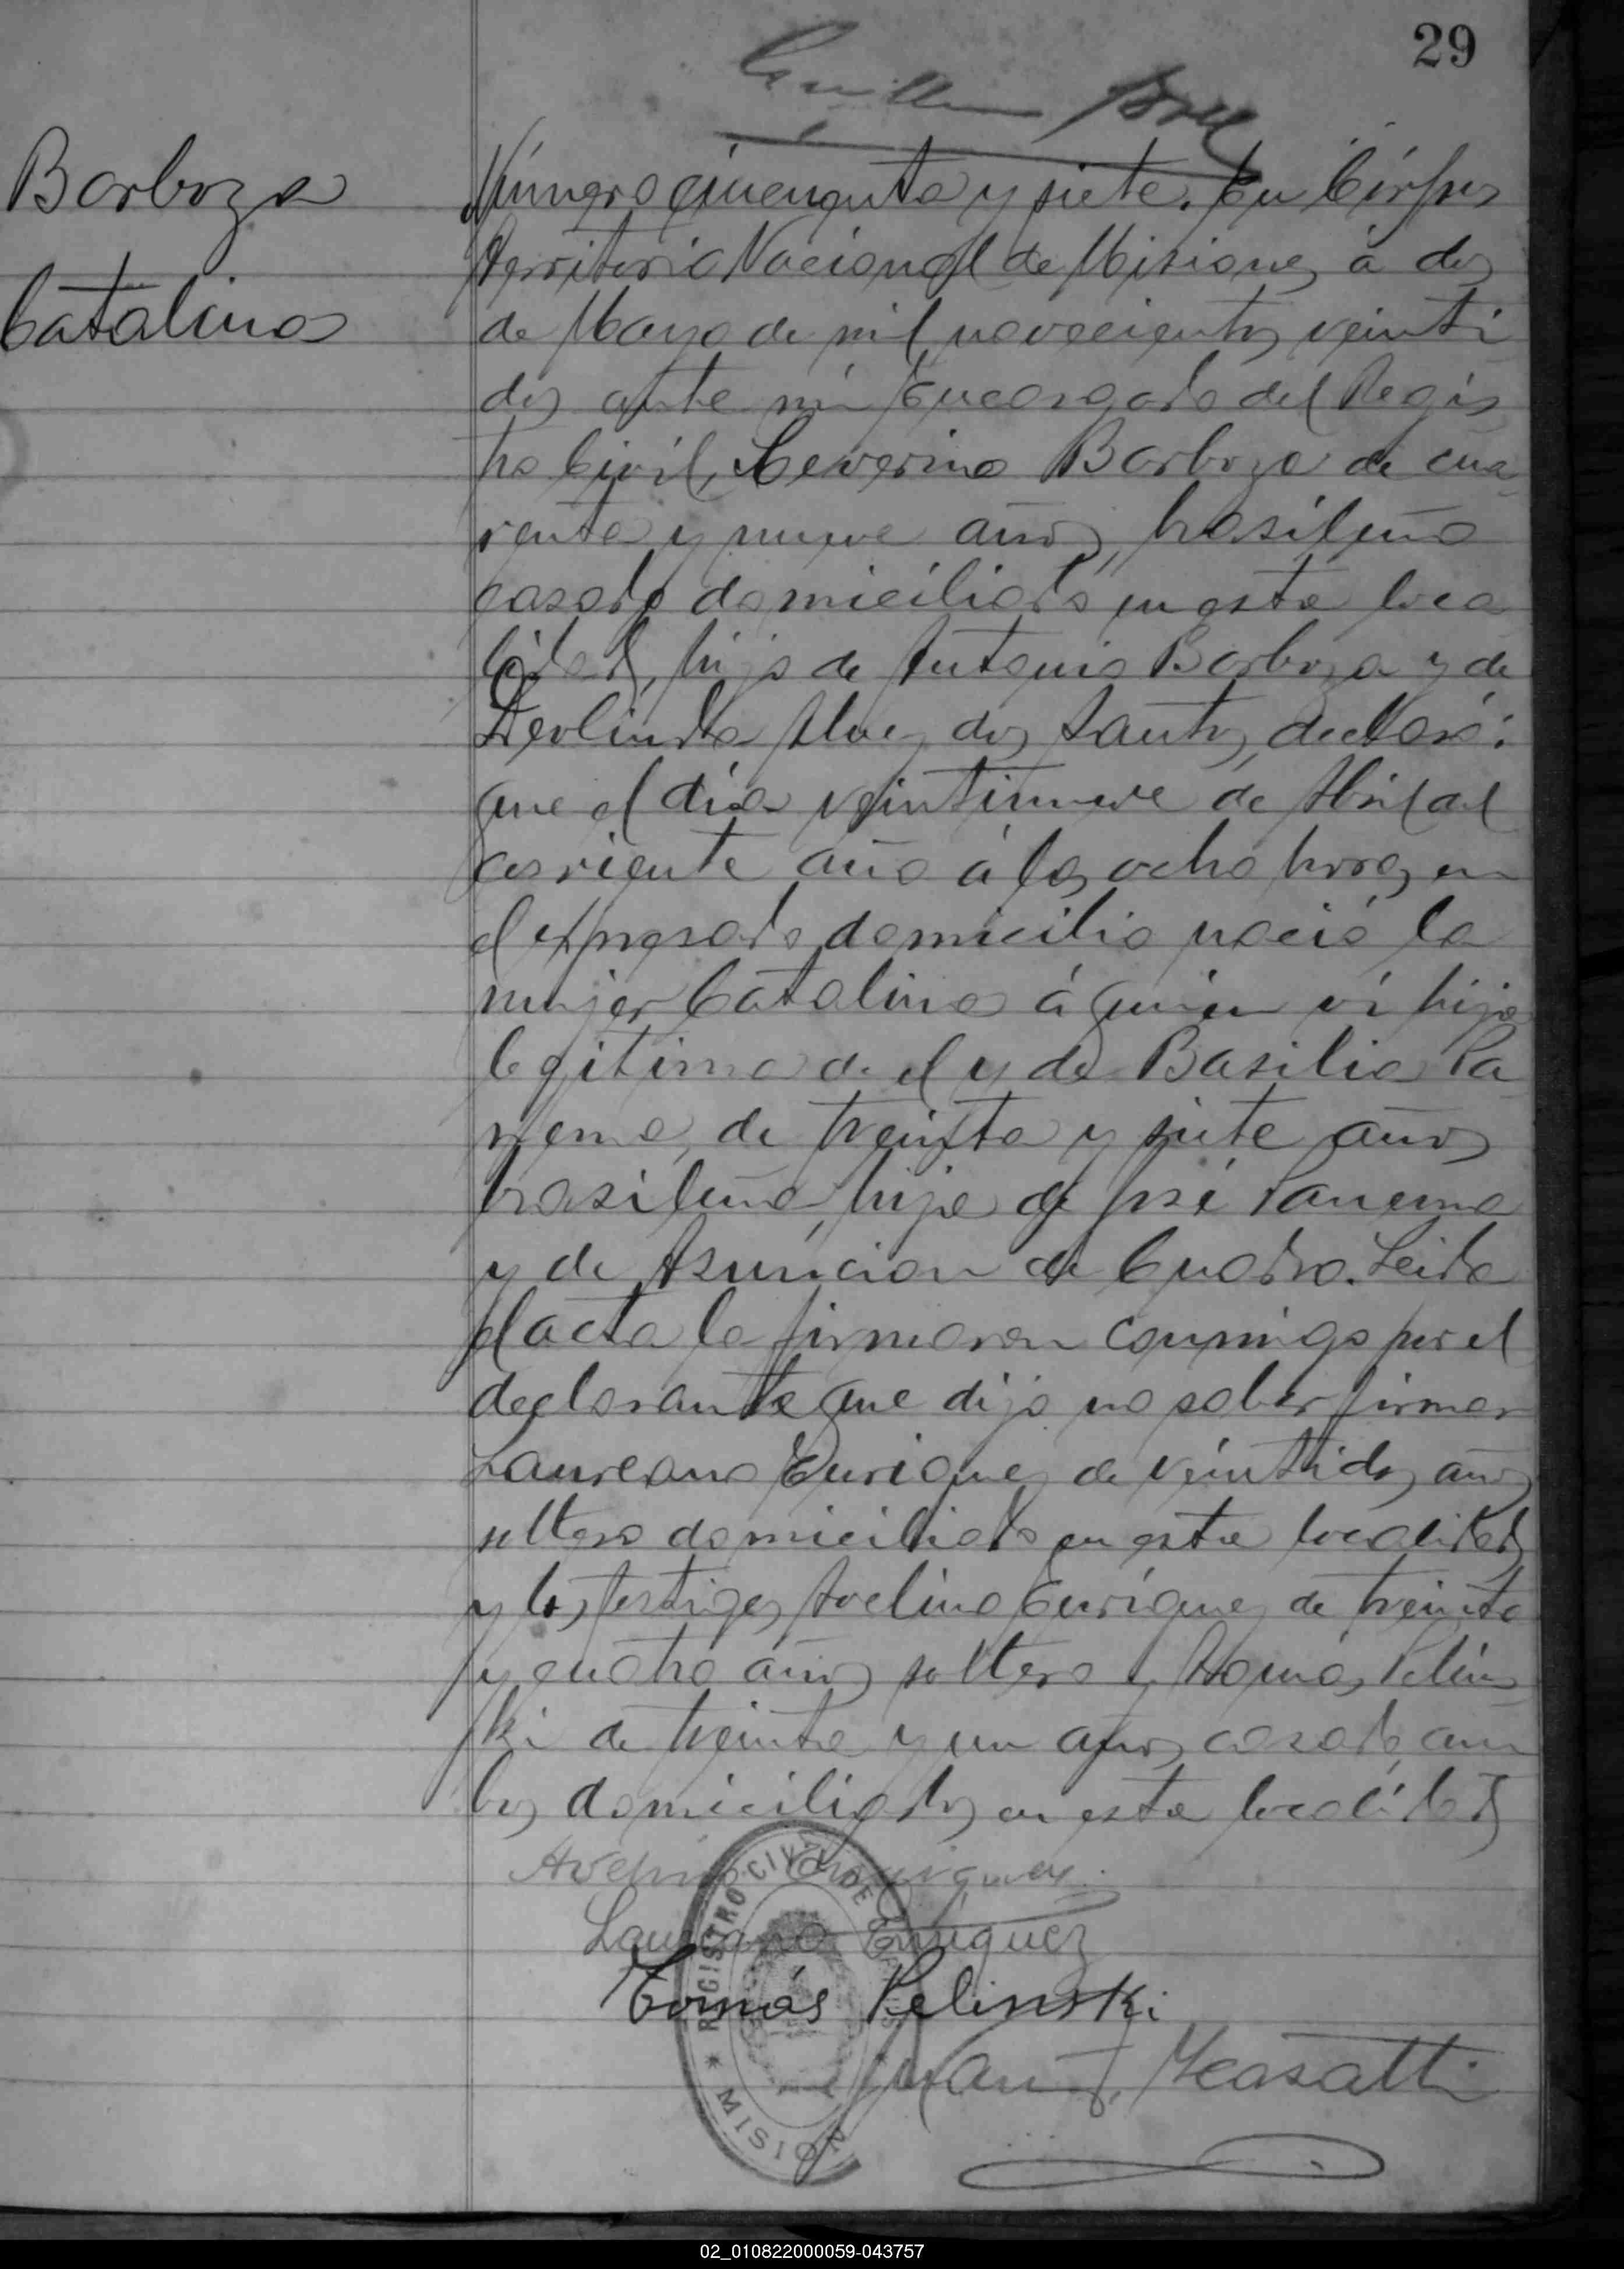 29
Barboza
Catalina
Número cincuenta y siete. En Córpus
Territorio Nacional de Misiones á dos
de Mayo de mil novecientos veinti
dos ante mi Encargado del Regis
tro Civil, Ceverino Barboza de cua
renta y nueve años, brasileño
casado domiciliado en esta loca
lidad, hijo de Barboza y de
Deolinda Alves dos Santos, declaró:
que el día veintinueve de Abril del
corriente año á las ocho horas en
el expresado domicilio nació la
mujer Catalina á quien ví hija
legitima de el y de Basilia Pa
nema, de treinta y siete años
brasileña, hija de José Panema
y de Asuncion de Cuadro. Leida
el acta la firmaron conmigo por el
declarante que dijo no saber firmar
Laureano Enrique, de veintidos años
soltero domiciliado en esta localidad
y los testigos Avelino Enrique, de treinta
y cuatro años soltero y Tomás Pelins
ki de treinta y un años, casado, am
bos domiciliados en esta localidad
Avelino Enriquez
Laureano Enriquez
Tomás Pelinski
Juan J. Measatti
REGISTRO CIVIL DE
MISIONES
02_010822000059-043757